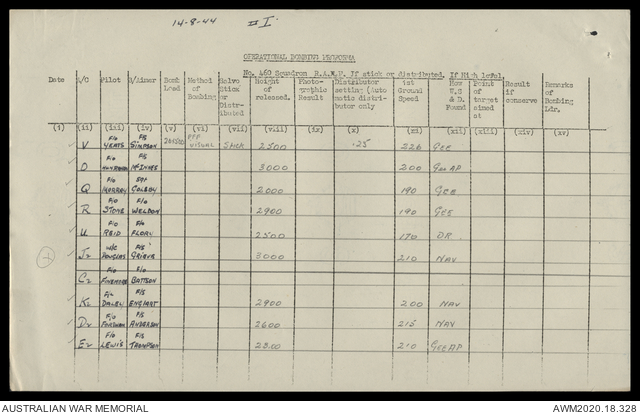 14-8-44 I
OPERATIONAL BOMBING PROFORMA
No. 460 Squadron R.A.A.F. If stick or distributed. If High level.
Date A/C Pilot B/Aimer Bomb Load Method of Bombing Salvo Stick or Distributed Height of released. Photographic Result Distributor setting (Automatic distributor only 1st Ground Speed How W.S & D. Found Point of target aimed at Result if conserve Remarks of Bombing Ldr.
(i) (ii) (iii) (iv) (v) (vi) (vii) (viii) (ix) (x) (xi) (xii) (xiii) (xiv) (xv)
F/O F/S PFF
V YEATS SIMPSON VISUAL Stick 2500 .25 226 GEE
F/O F/S
O McINNES 3000 200 Gee AP
F/O SGT
Q MURRAY COLEBY 2000 190 GEE
F/O F/O
R STONE WELDON 2900 190 GEE
F/O F/O
U REID FLORY 2500 170 DR
W/C F/S
J2 DOUGLAS GRIEVE 3000 210 NAV
F/O F/O
C2 BATTSON
F/S
K2 DALEY ENGLART 2900 200 NAV
F/O F/S
D2 ANDERSON 2600 215 NAV
F/O F/S
E2 LEWIS THOMPSON 2800 210 Gee AP
AUSTRALIAN WAR MEMORIAL AWM2020.18.328